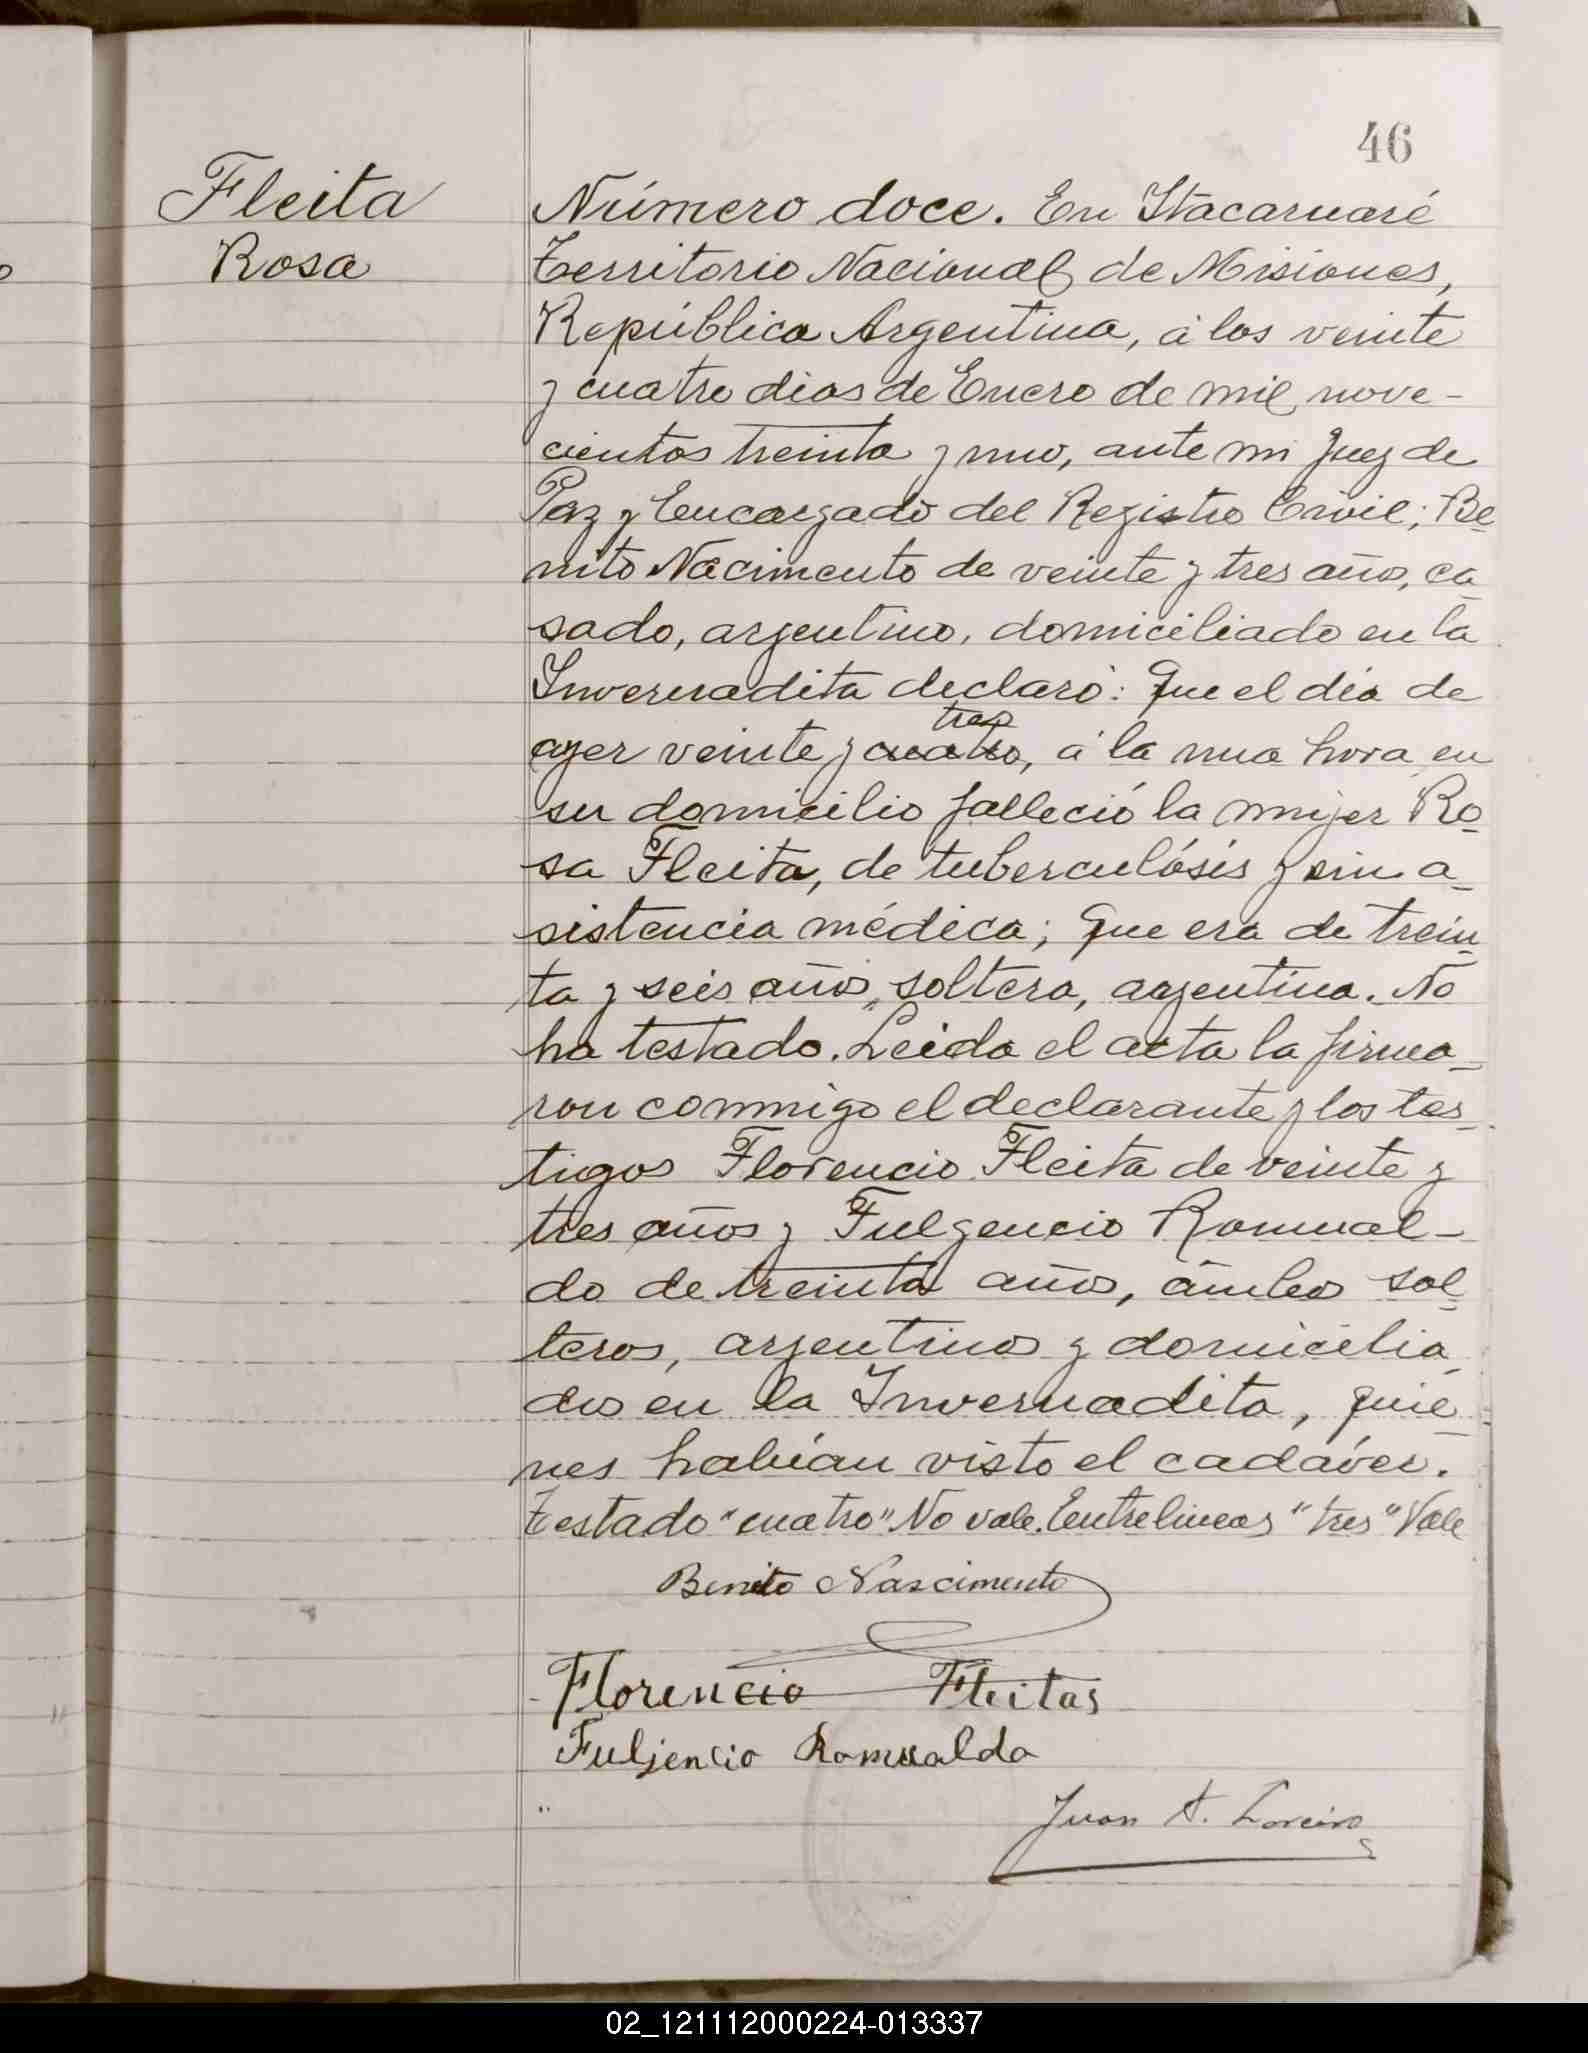 46
Fleita
Rosa
Número doce. En Itacaruaré
Territorio Nacional de Misiones,
República Argentina, á los veinte
y cuatro dias de Enero de mil nove-
cientos treinta y uno, ante mi Juez de
Paz y Encargado del Registro Civil; Be-
nito Nacimento de veinte y tres años, ca-
sado, argentino, domiciliado en la
Invernadita declaró: Que el día de
tres
ayer veinte y cuatro, á la una hora en
su domicilio falleció la mujer Ro-
sa Fleita, de tuberculósis y sin a-
sistencia médica; Que era de trein-
ta y seis años, soltera, argentina. No
ha testado. Leida el acta la firma-
ron conmigo el declarante y los tes-
tigos Florencio Fleita de veinte y
tres años y Fulgencio Romual-
do de treinta años, ámbos sol-
teros, argentinos y domicilia-
dos en la Invernadita, quie-
nes habían visto el cadáver.
Testado "cuatro" No vale. Entrelineas "tres" Vale
Benito Nascimento
Florencio Fleitas
Fuljencio Romualdo
Juan A. Loreiro
02_121112000224-013337